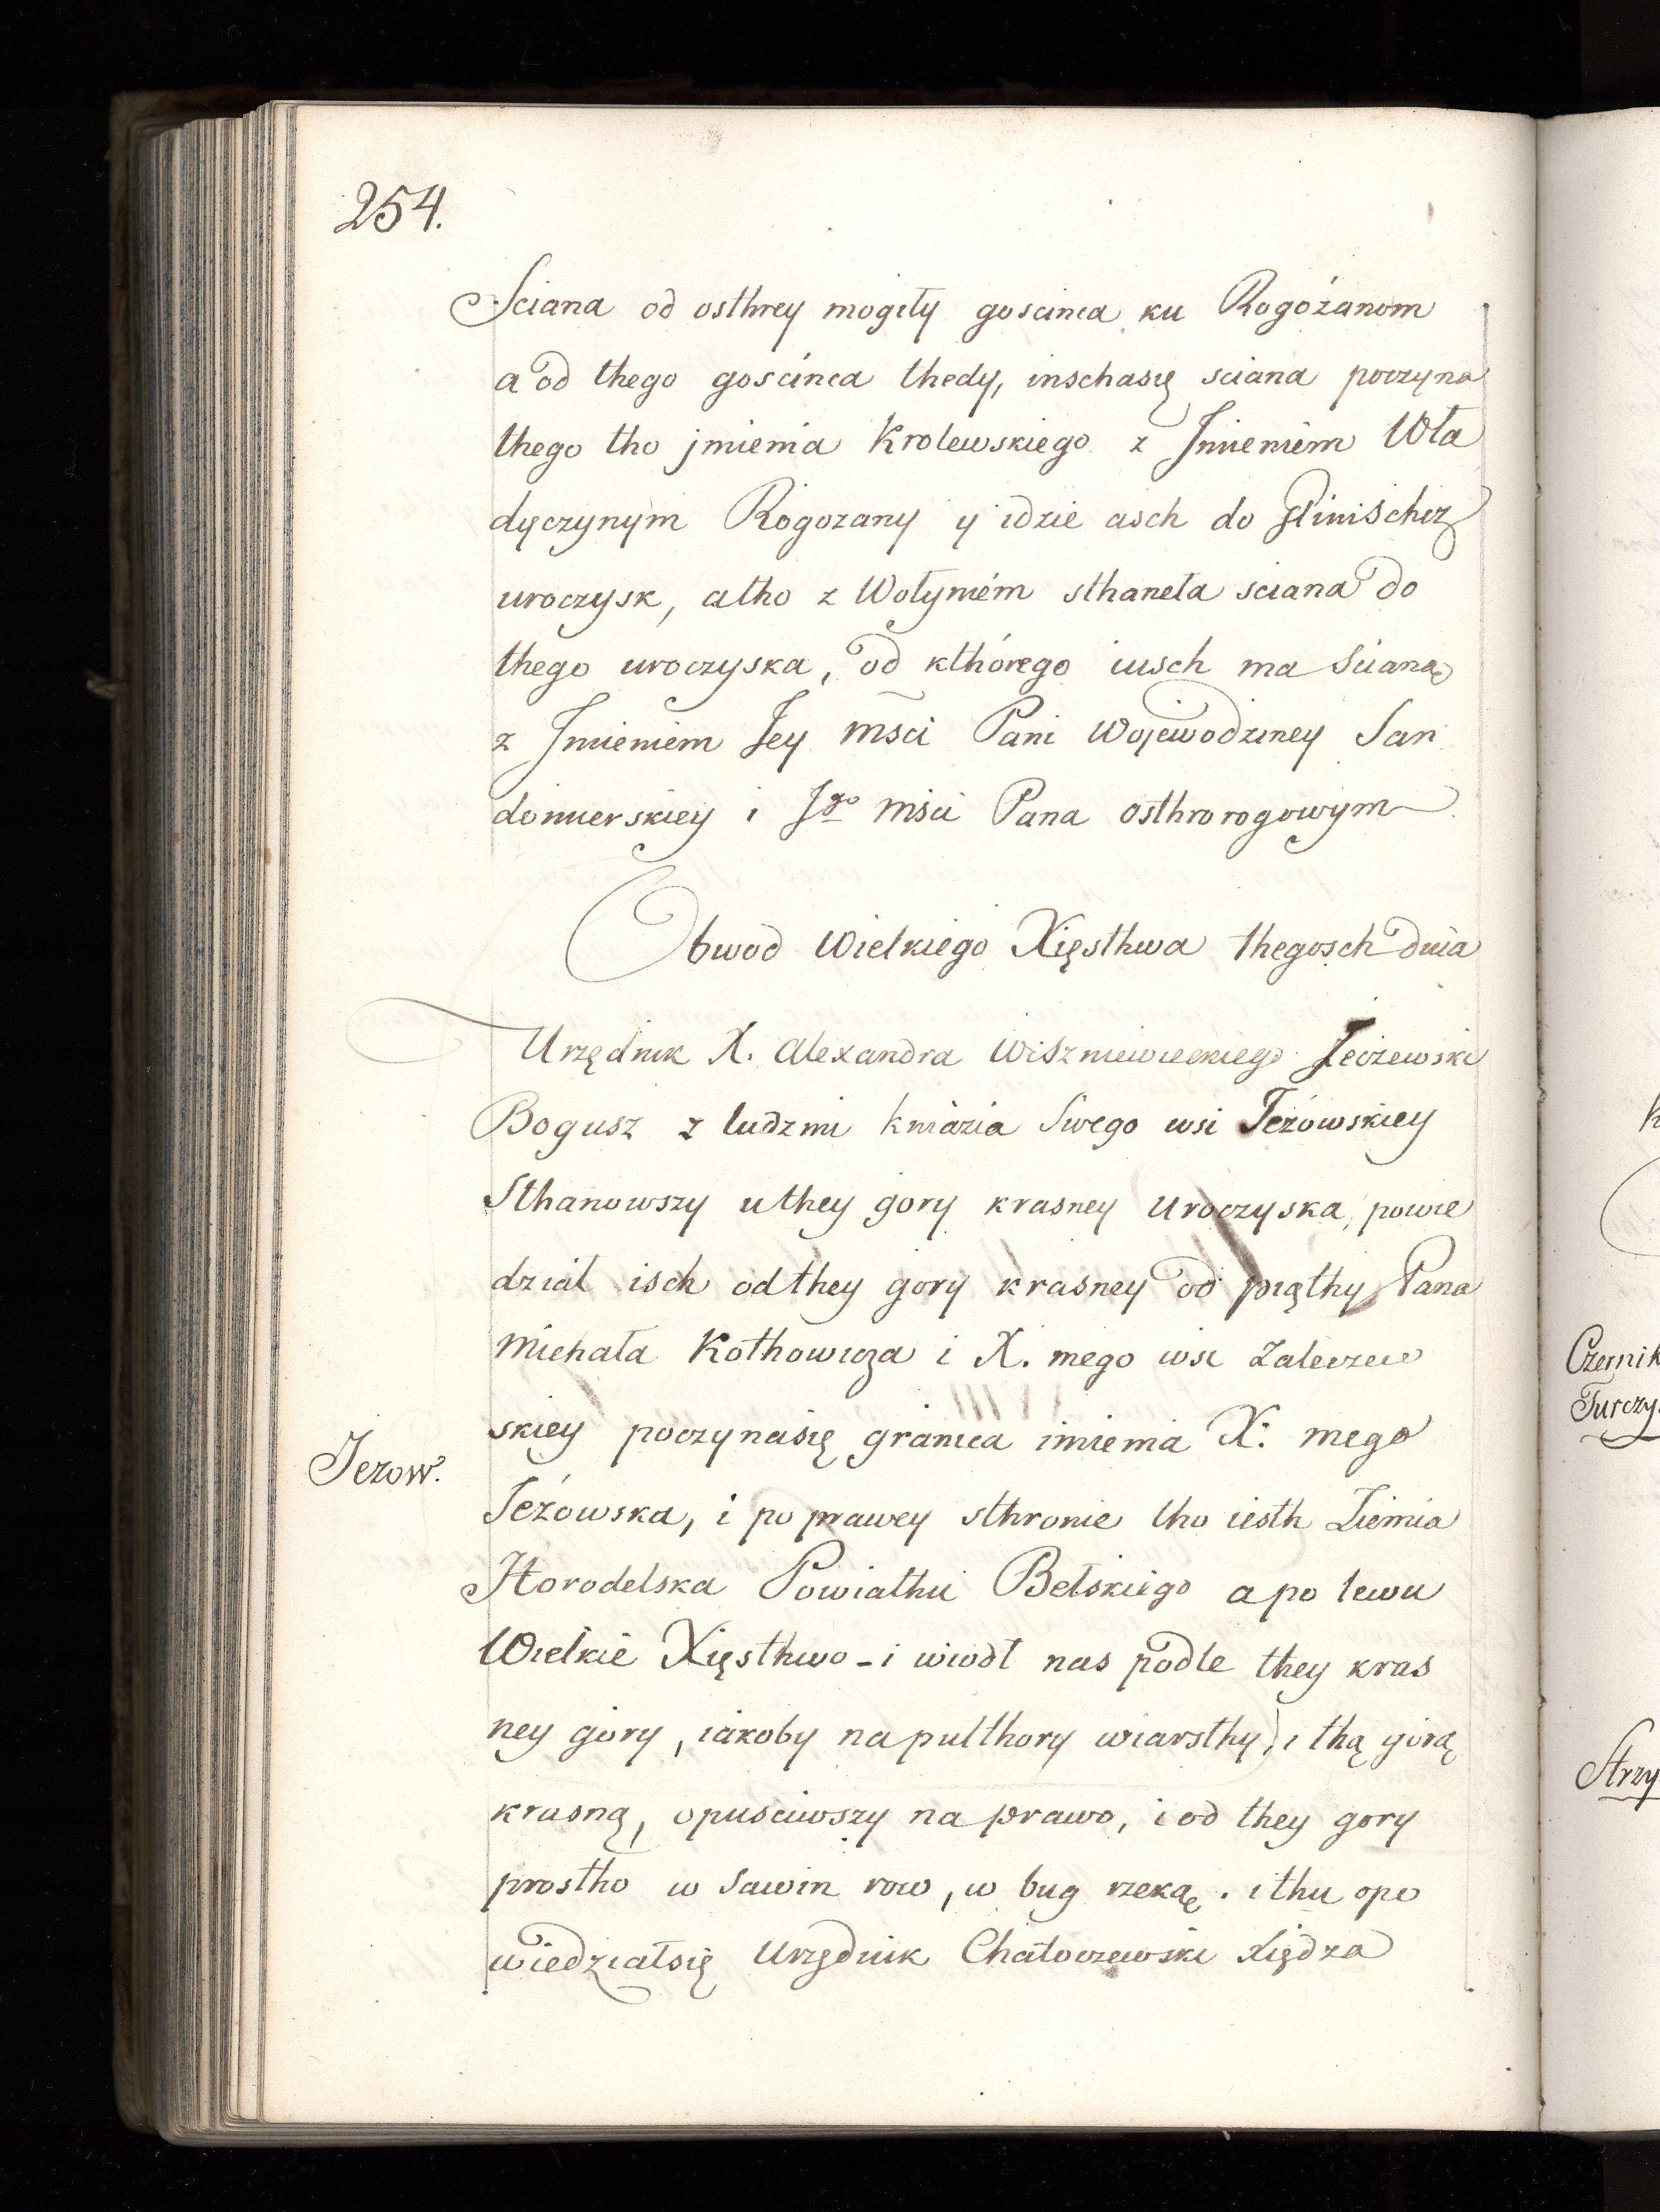 254.
Sciana od osthrey mogiły goscinca ku Rogożanom
a od thego goscinca thedy, inschasię sciana poczyna
thego tho jmienia Krolewskiego z Jmieniem Wła
dyczynym Rogozany y idzie asch do Glinischcz
uroczysk, atho z Wołyniem sthaneła sciana do
thego uroczyska, od kthórego iusch ma scianą
z Jmieniem Jey msci Pani Wojewodziney San
domierskiey i Jgo msci Pana Osthrorogowym
Obwod Wielkiego Xięsthwa thegosch dnia
Urzędnik X. Alexandra Wiszniewieckiego Jeczewski
Bogusz z ludzmi kniazia Swego wsi Jeżowskiey
Sthanowszy uthey gory krasney uroczyska, powie
dział isch odthey gory krasney od piąthy Pana
Michała Kothowicza i X. mego wsi Zaleczew
skiey poczynasię granica imienia X. mego
Jezow.
Jeżowska, i po prawey sthronie tho iesth Ziemia
Horodelska Powiathu Bełskiego a po lewu
Wielkie Xięsthwo - i wiodł nas podle they kras
ney góry, iakoby na pulthory wiarsthy, i thą górą
krasną, opusciwszy na prawo, i od they gory
prostho w Sawin row, w bug rzeką. i thu opo
wiedziałsię Urzędnik Chałoczewski Xiędza
Czernik
Turczy
Strzy